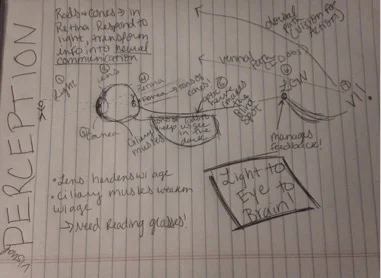 PERCEPTION
Vision
Rods + Cones → in
Retina Respond to
light, transform
info into neural
communication
dorsal
vision for
Action
ventral
① Light
② Cornea
③ Lens
④ Retina
Fovea →
cones
Ciliary
muscles
in the
dark
optic nerve
makes
Blind
Spot
⑥ LGN
⑦ V1
manages
feedback!
• Lens hardens w/ age
• Ciliary muscles weaken
w/ age
→ Need Reading glasses!
Light to
Eye to
Brain!